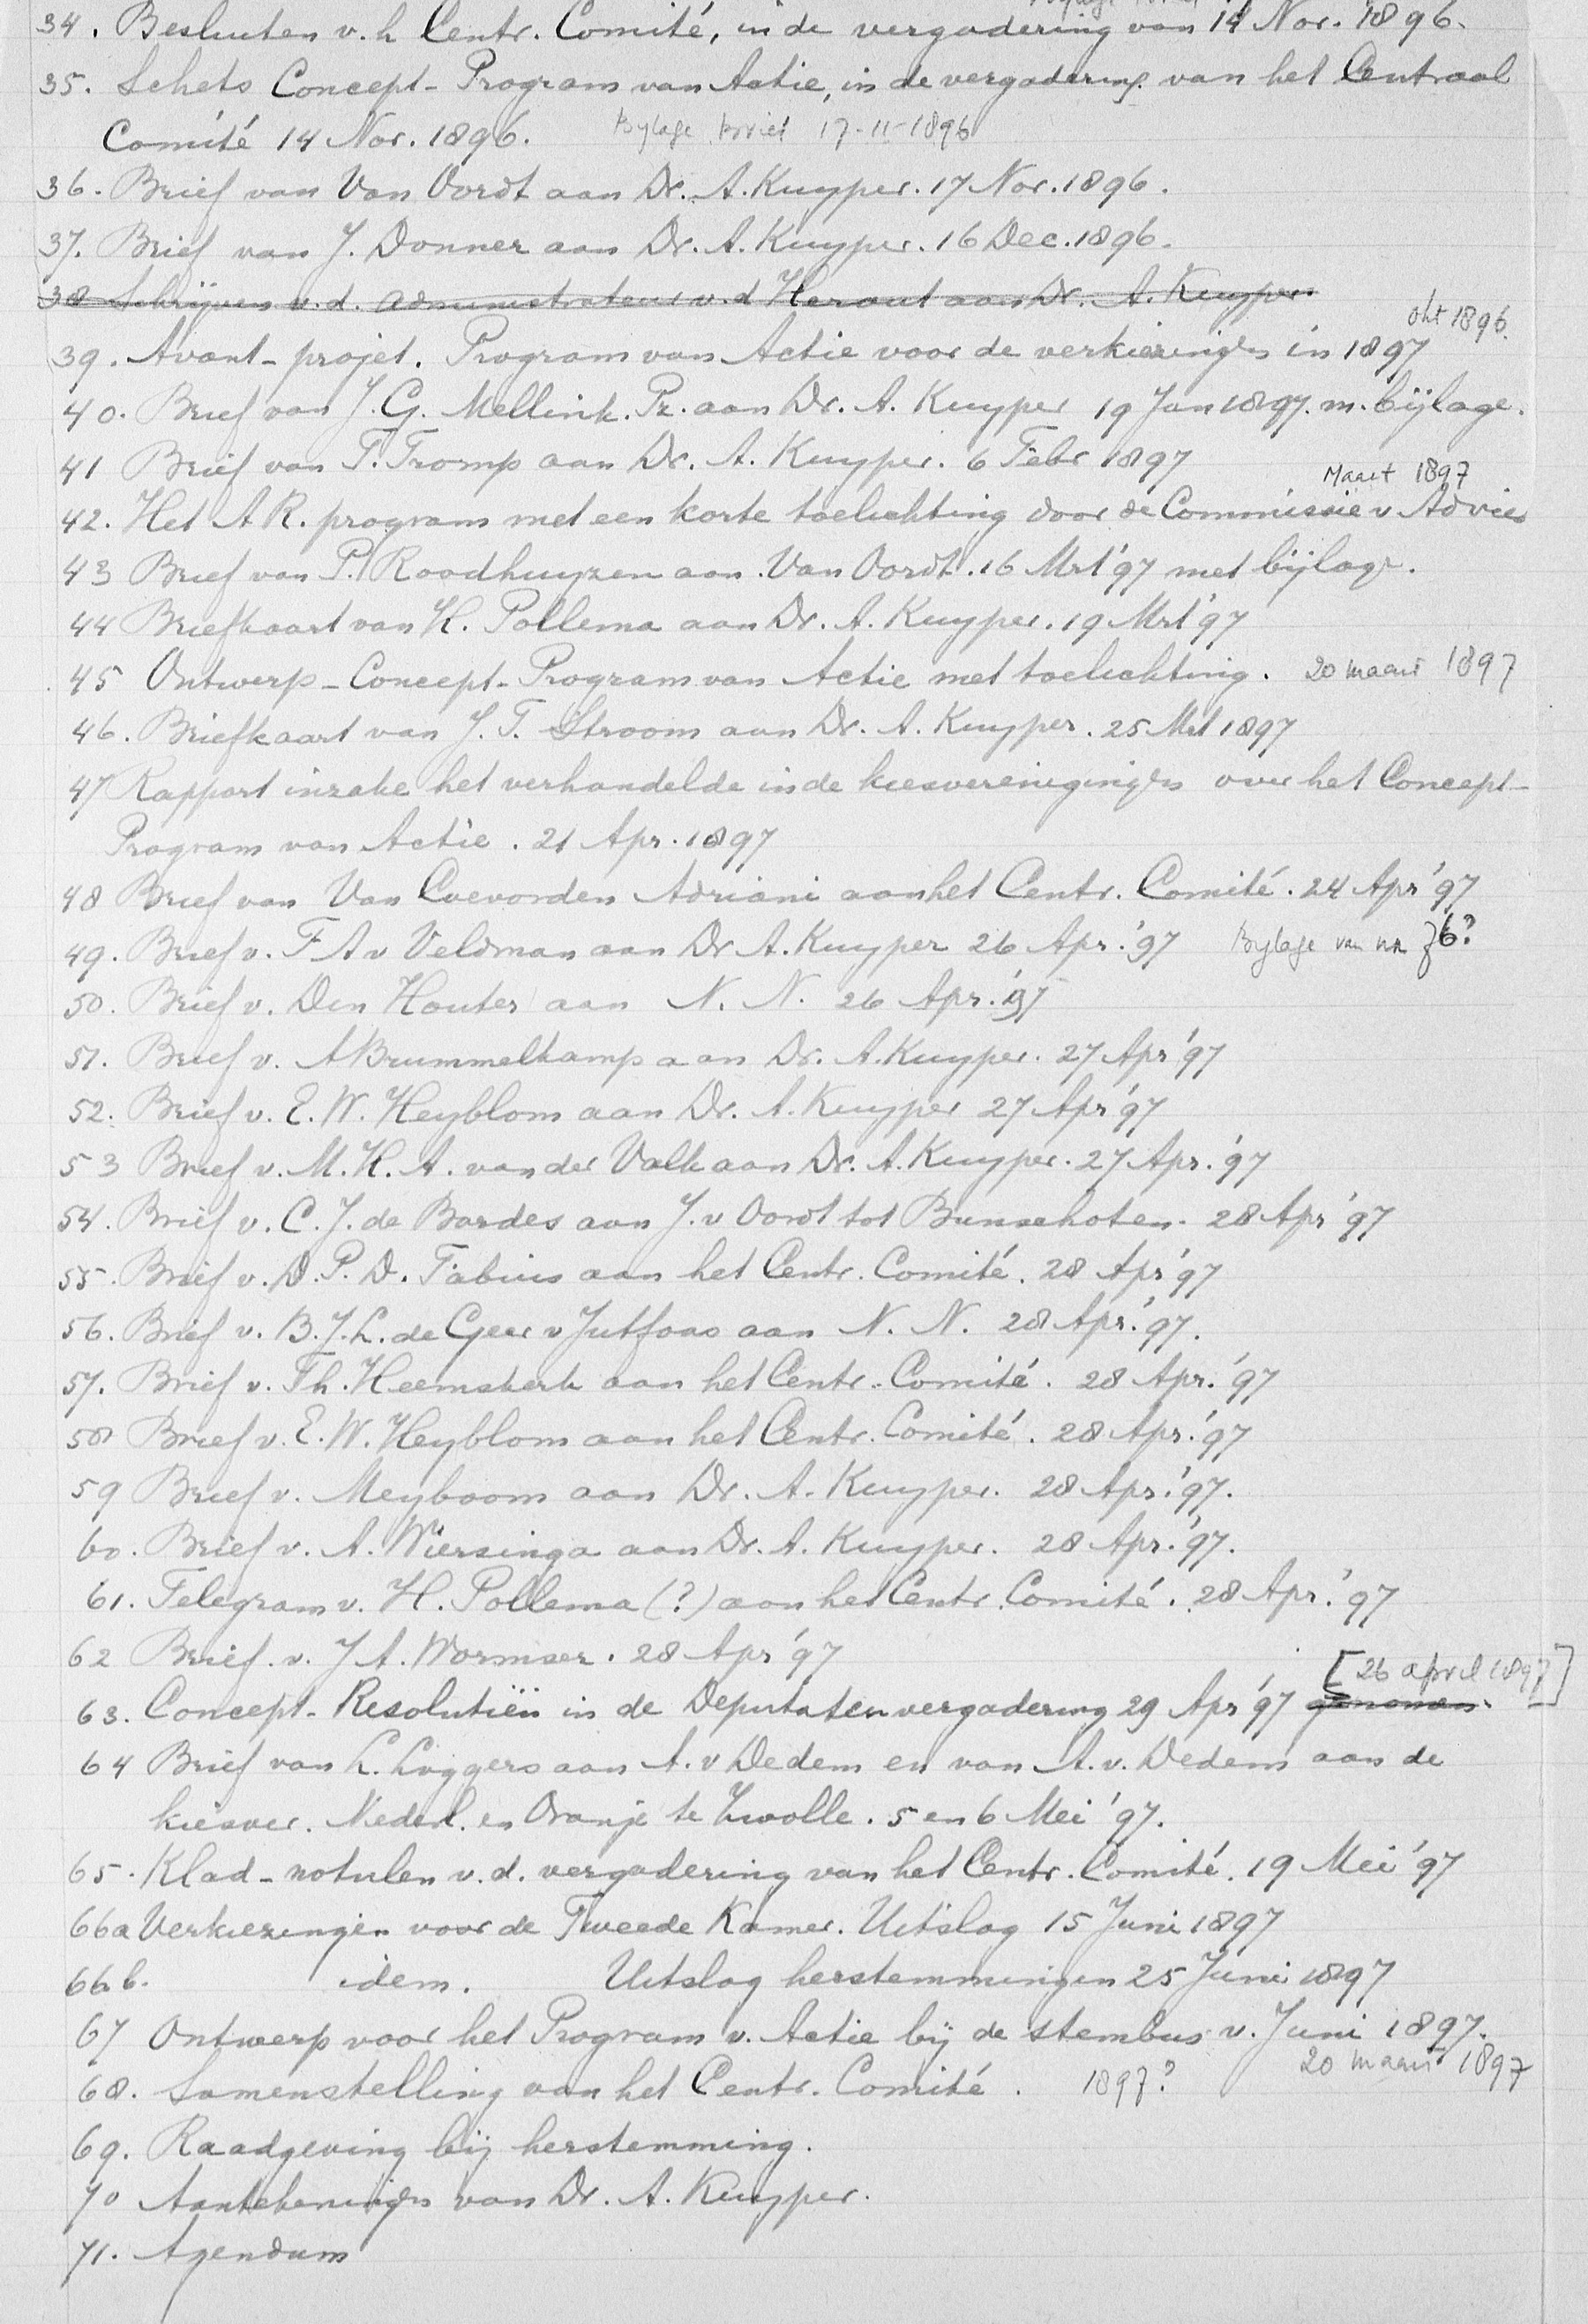 34. Besluiten v. h Centr. Comité, in de vergadering van 14 Nov. 1896.
35. Schets Concept-Program van Actie, in de vergadering van het Centraal
Comité 14 Nov. 1896. Bylage brief 17-11-1896
36. Brief van Van Oordt aan Dr. A. Kuyper. 17 Nov. 1896.
37. Brief van J. Donner aan Dr. A. Kuyper. 16 Dec. 1896.
38 Schrijven v. d. administrateur v. d Heraut aan Dr. A. Kuyper.
okt 1896.
39. Avant-projet. Program van Actie voor de verkiezingen in 1897
40. Brief van J. G. Mellink. Pz. aan Dr. A. Kuyper 19 Jan 1897. m. bijlage.
41 Brief van T. Tromp aan Dr. A. Kuyper. 6 Febr 1897
Maart 1897
42. Het A R. program met een korte toelichting door de Commissie v Advies
43 Brief van P. Roodhuyzen aan Van Oordt. 16 Mrt '97 met bijlage.
44 Briefkaart van H. Pollema aan Dr. A. Kuyper. 19 Mrt '97
45 Ontwerp-Concept-Program van Actie met toelichting. 20 maart 1897
46. Briefkaart van J. T. Stroom aan Dr. A. Kuyper. 25 Mrt 1897
47 Rapport inzake het verhandelde in de kiesvereenigingen over het Concept-
Program van Actie. 21 Apr. 1897
48 Brief van Van Coevorden Adriani aan het Centr. Comité. 24 Apr '97
49. Brief v. F A v Veldman aan Dr A. Kuyper 26 Apr. '97 Bylage van
50. Brief v. Den Houter aan N. N. 26 Apr. '97
51. Brief v. A Brummelkamp aan Dr. A. Kuyper. 27 Apr '97
52. Brief v. E. W. Heyblom aan Dr. A. Kuyper 27 Apr '97
53 Brief v. M. H. A. van der Valk aan Dr. A. Kuyper. 27 Apr. '97
54. Brief v. C. J. de Bordes aan J. v Oordt tot Bunschoten. 28 Apr '97
55. Brief v. D. P. D. Fabius aan het Centr. Comité. 28 Apr '97
56. Brief v. B. J. L. de Geer v Jutfaas aan N. N. 28 Apr. '97.
57. Brief v. Th. Heemskerk aan het Centr. Comité. 28 Apr. '97
58 Brief v. E. W. Heyblom aan het Centr. Comité. 28 Apr. '97
59 Brief v. Meyboom aan Dr. A. Kuyper. 28 Apr. '97.
60. Brief v. A. Wiersinga aan Dr. A. Kuyper. 28 Apr. '97.
61. Telegram v. H. Pollema (?) aan het Centr. Comité. 28 Apr. '97
62 Brief. v. J A. Wormser. 28 Apr '97
[26 april 1897]
63. Concept-Resolutiën in de Deputatenvergadering 29 Apr '97 genomen.
64 Brief van L. Luggers aan A. v Dedem en van A. v. Dedem aan de
kiesver. Nederl. en Oranje te Zwolle. 5 en 6 Mei '97.
65. Klad-notulen v. d. vergadering van het Centr. Comité. 19 Mei '97
66a Verkiezingen voor de Tweede Kamer. Uitslag 15 Juni 1897
66 b. idem. Uitslag herstemmingen 25 Juni 1897
67 Ontwerp voor het Program v. Actie bij de stembus v. Juni 1897.
20 maart 1897
68. Samenstelling van het Centr. Comité. 1897?
69. Raadgeving bij herstemming.
70 Aantekeningen van Dr. A. Kuyper.
71. Agendum